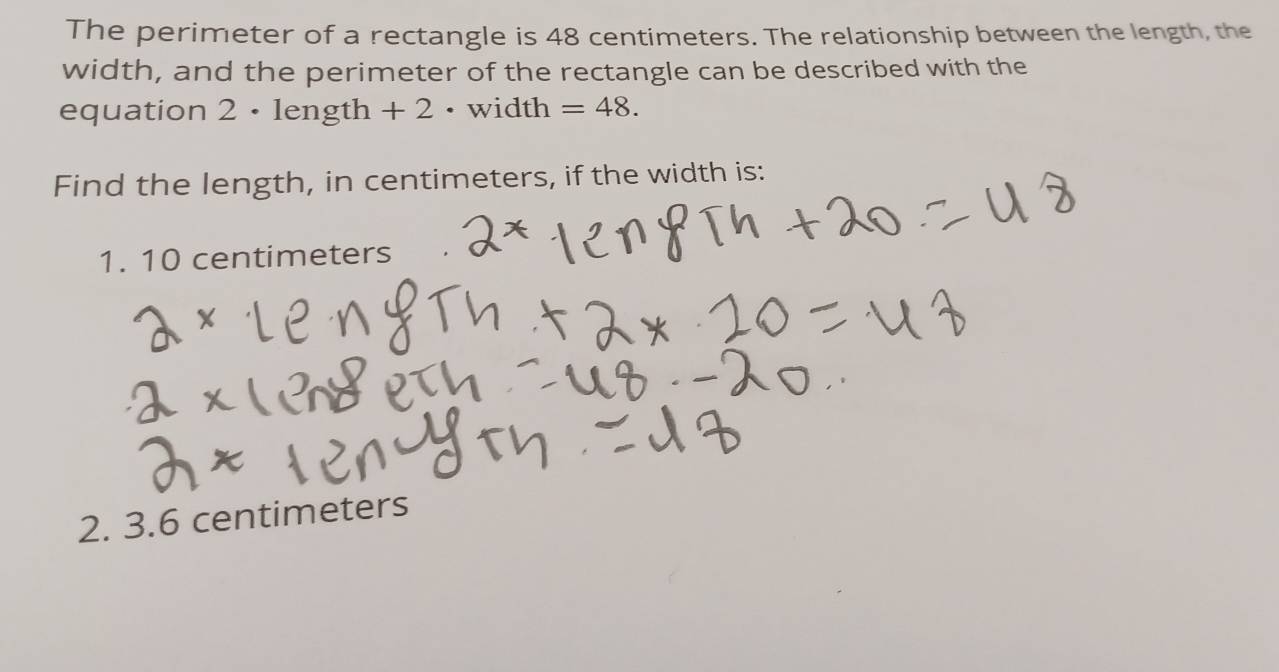 The perimeter of a rectangle is 48 centimeters. The relationship between the length, the
width, and the perimeter of the rectangle can be described with the
equation 2 · length + 2 · width = 48.
Find the length, in centimeters, if the width is:
1. 10 centimeters
2* length + 20 = 48
2 x length + 2 * 10 = 48
2 x lengeth = 48 - 20
2* length = 48
2. 3.6 centimeters